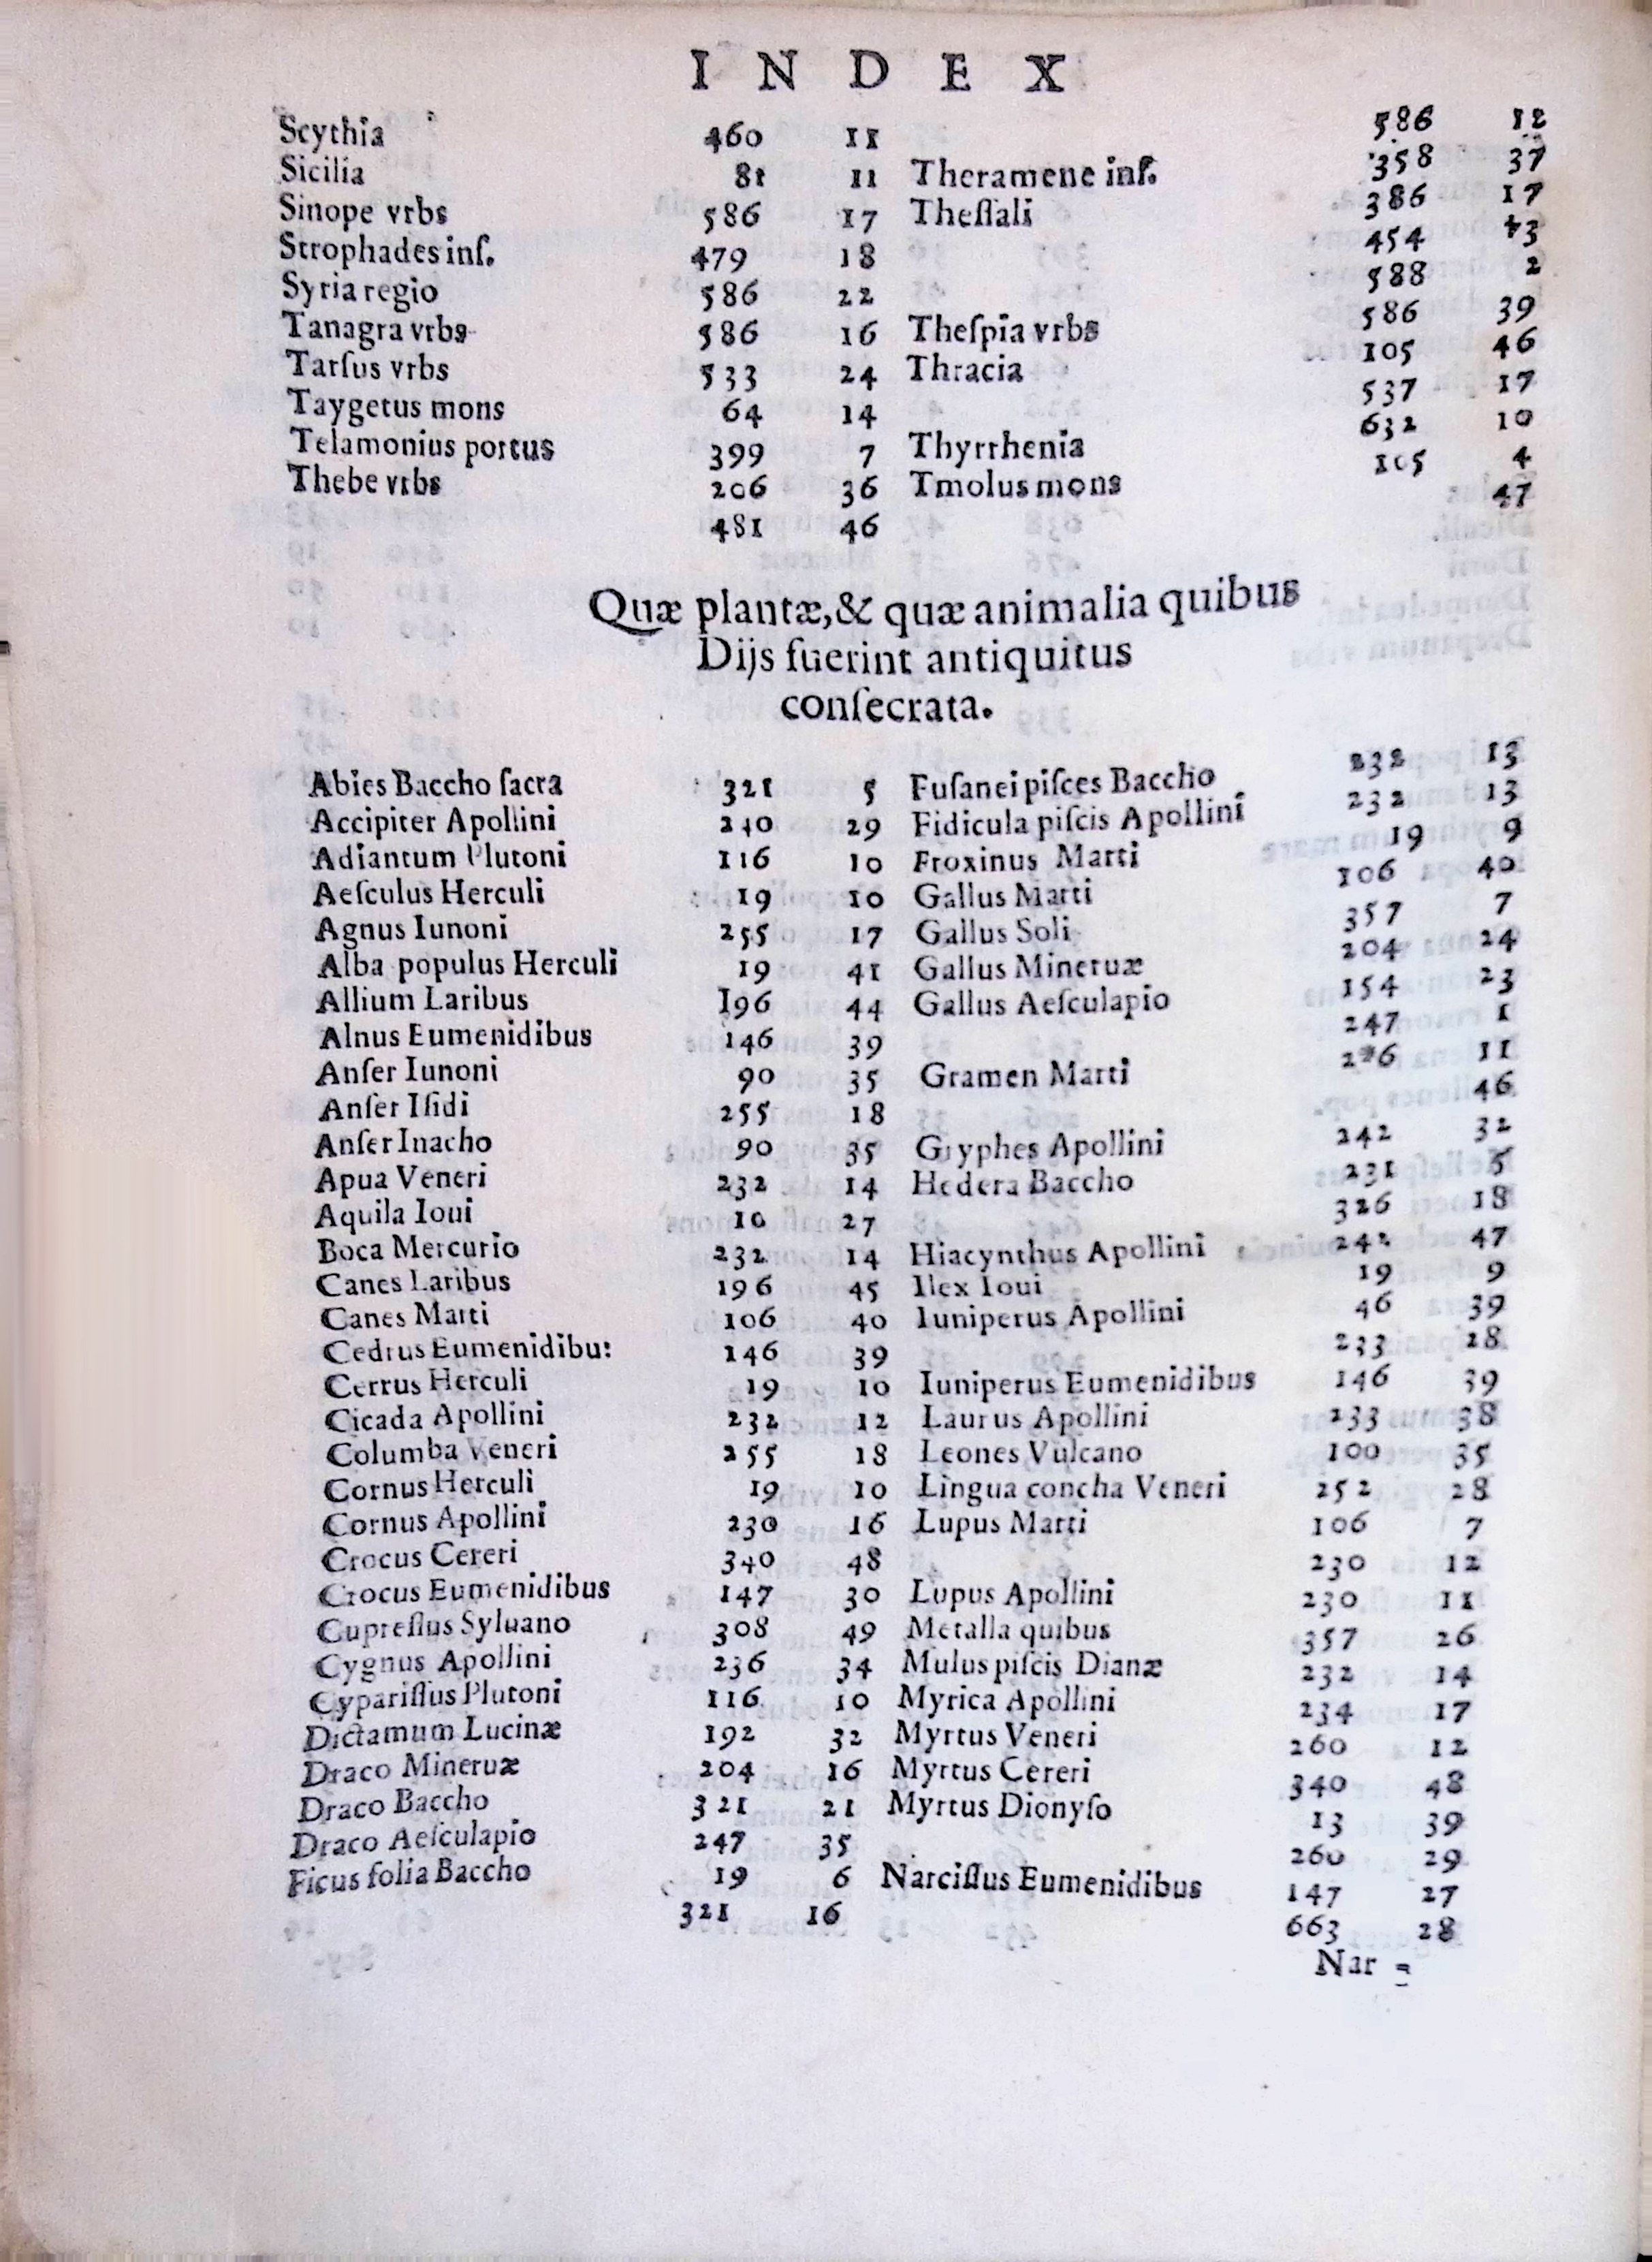 INDEX
Scythia 460 11
Sicilia 81 11
Sinope vrbs 586 17
Strophades inſ. 479 18
Syria regio 586 22
Tanagra vrbs 586 16
Tarſus vrbs 533 24
Taygetus mons 64 14
Telamonius portus 399 7
Thebe vrbs 206 36
481 46
586 12
Theramene inſ. 358 37
Theſſali 386 17
454 43
588 2
Theſpia vrbs 586 39
Thracia 105 46
537 17
Thyrrhenia 632 10
Tmolus mons 105 4
47
Quæ plantæ, & quæ animalia quibus
Dijs fuerint antiquitus
conſecrata.
Abies Baccho ſacra 321 5
Accipiter Apollini 240 29
Adiantum Plutoni 116 10
Aeſculus Herculi 19 10
Agnus Iunoni 255 17
Alba populus Herculi 19 41
Allium Laribus 196 44
Alnus Eumenidibus 146 39
Anſer Iunoni 90 35
Anſer Iſidi 255 18
Anſer Inacho 90 35
Apua Veneri 232 14
Aquila Ioui 10 27
Boca Mercurio 232 14
Canes Laribus 196 45
Canes Marti 106 40
Cedrus Eumenidibu: 146 39
Cerrus Herculi 19 10
Cicada Apollini 232 12
Columba Veneri 255 18
Cornus Herculi 19 10
Cornus Apollini 230 16
Crocus Cereri 340 48
Crocus Eumenidibus 147 30
Cupreſſus Syluano 308 49
Cygnus Apollini 236 34
Cypariſſus Plutoni 116 10
Dictamum Lucinæ 192 32
Draco Mineruæ 204 16
Draco Baccho 321 21
Draco Aeſculapio 247 35
Ficus folia Baccho 19 6
321 16
Fuſanei piſces Baccho 232 13
Fidicula piſcis Apollini 232 13
Froxinus Marti 19 9
Gallus Marti 106 40
Gallus Soli 357 7
Gallus Mineruæ 204 24
Gallus Aeſculapio 154 23
247 1
Gramen Marti 11
46
Gryphes Apollini 242 32
Hedera Baccho 231 5
326 18
Hiacynthus Apollini 242 47
Ilex Ioui 19 9
Iuniperus Apollini 46 39
233 28
Iuniperus Eumenidibus 146 39
Laurus Apollini 233 38
Leones Vulcano 100 35
Lingua concha Veneri 252 28
Lupus Marti 106 7
230 12
Lupus Apollini 230 11
Metalla quibus 357 26
Mulus piſcis Dianæ 232 14
Myrica Apollini 234 17
Myrtus Veneri 260 12
Myrtus Cereri 340 48
Myrtus Dionyſo 13 39
260 29
Narciſſus Eumenidibus 147 27
663 28
Nar=